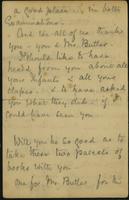 a good place - in both
Examinations.
And the all of us thanks
You - you & Mr. Butler.
I should like to have
heard from you above all
your
& all your
classes. & to have asked
for what they did - if I
could have been you
Will you be so good as to
take these two parcels of
books with you -
One for Mr. Butler, for